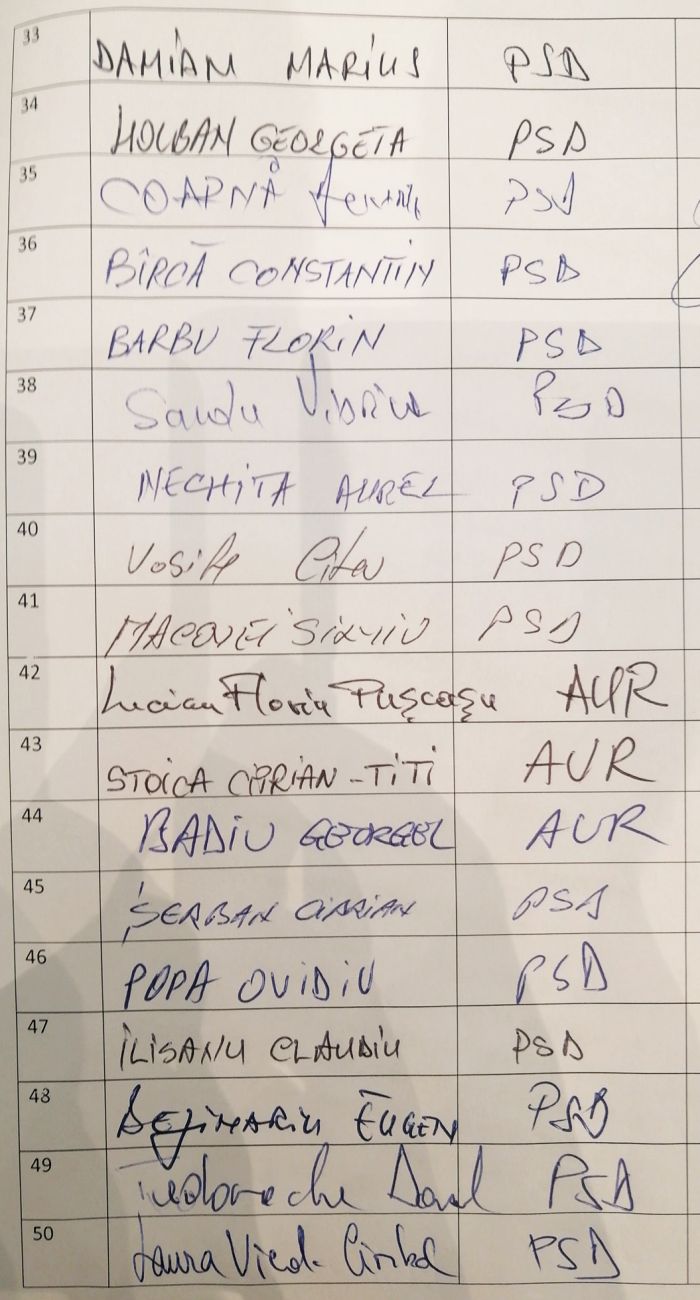 33 DAMIAN MARIUS PSD
34 HOLBAN GEORGETA PSD
35 COARNĂ PSD
36 BÎRCĂ CONSTANTIN PSD
37 BARBU FLORIN PSD
38 Sandu PSD
39 NECHITA AUREL PSD
40 PSD
41 MACOVEI SILVIU PSD
42 Lucian Florin Pușcașu AUR
43 STOICA CIPRIAN-TITI AUR
44 BADIU GEORGEL AUR
45 ȘERBAN CIPRIAN PSD
46 POPA OVIDIU PSD
47 ILISANU CLAUDIU PSD
48 EUGEN PSD
49 PSD
50 Laura PSD